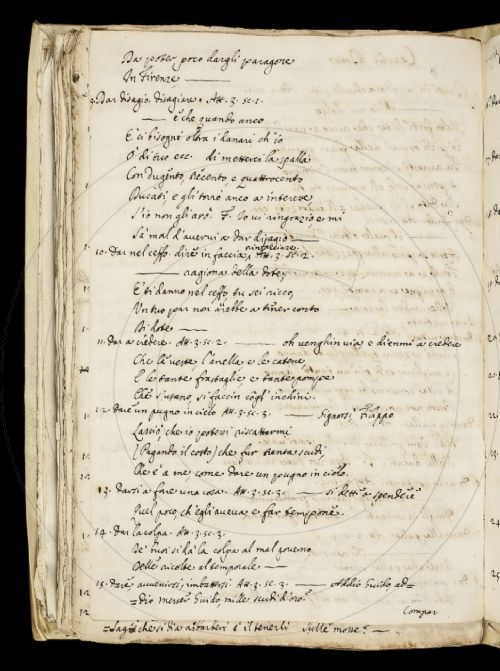 Da poter poco dargli paragone
In Firenze
9. Dar disagio. Disagiare. Att. 3. sc. 1.
è che quando anco
E' ci bisogni oltra i danari ch'io
O' di tuo ecc. di metterci la spalla
Con dugento, trecento, e quattrocento
Ducati, e gli torrò anco a interesse
S'io non gli arò. F. Io vi ringrazio, e mi
Sa mal d'avervi a dar disagio
rinfacciare
10. Dar nel ceffo. dire in faccia, Att. 3. sc. 2.
ragiona della dote,
E ti danno nel ceffo, tu sei ricco,
Un tuo par non arebbe a tener conto
Di dote
11. Dar a credere. Att. 3. sc. 2. oh venghin via e dienmi a credere
Che le veste l'anella, e le catene
E le tante frastaglie e tante pompe
Che s'usano, si faccin
12. Dare un pugno in cielo Att. 3. sc. 3. Signorsì Filippo
Lasciò, che io potessi riscattarmi
(Pagando il cotto) che fur trenta scudi,
Che è a me, come dare un pugno in cielo.
13. Darsi a fare una cosa. Att. 3. sc. 3. si dette a spendere
Quel poco, ch'egli aveva, e far tempone.
14. Dar la colpa. Att. 3. sc. 3.
De' buoi si dà la colpa al mal governo
Delle ricolte al temporale
15. Dare, avvenirsi, imbattersi Att. 3. sc. 3. Addio Guido, ad=
=dio messer Guido, mille scudi d'oro!
Compar
che si dia a è il tenerli Sulle mosse?